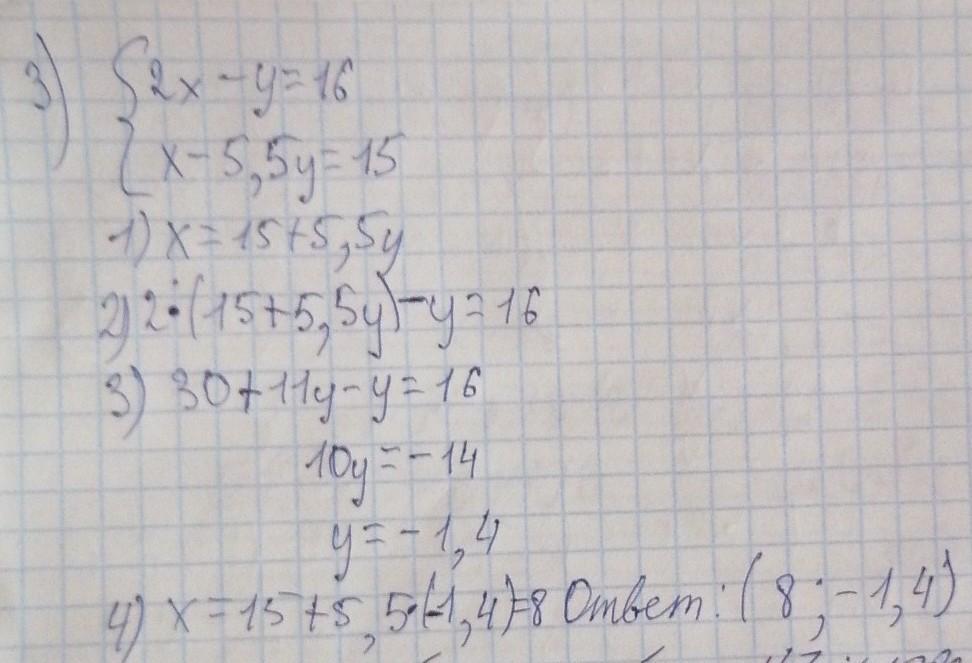 3) { 2x - y = 16
x - 5,5y = 15
1) x = 15 + 5,5y
2) 2·(15 + 5,5y) - y = 16
3) 30 + 11y - y = 16
10y = -14
y = -1,4
4) x = 15 + 5,5·(-1,4) = 8 Ответ: (8; -1,4)